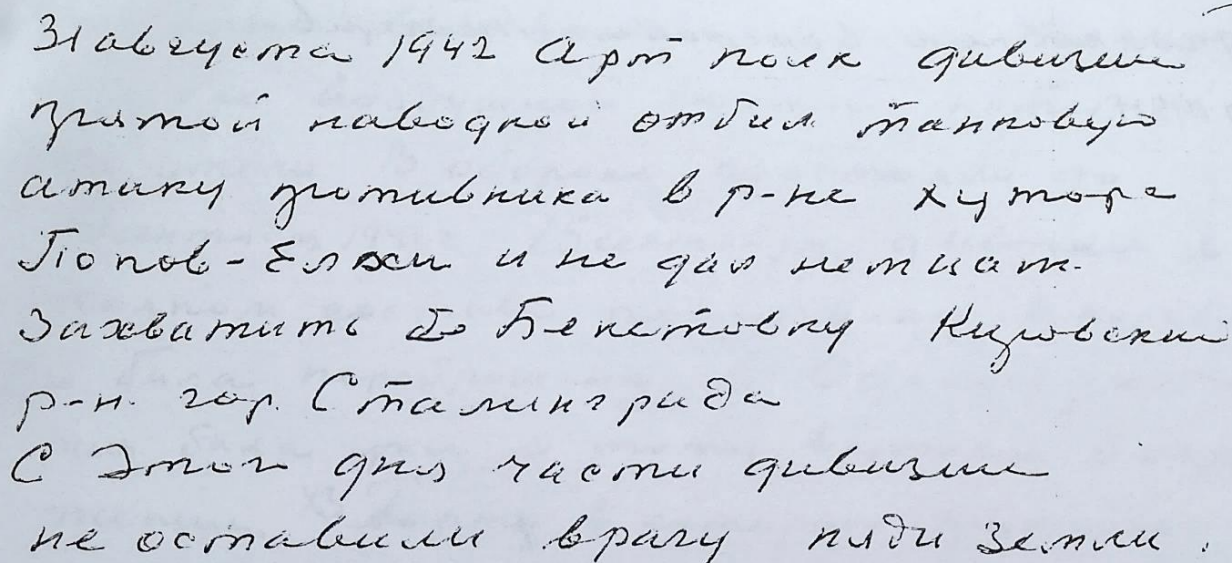 31 августа 1942 Арт полк дивизии
прямой наводкой отбил танковую
атаку противника в р-не хутора
Попов-Елхи и не дал немцам
захватить Бекетовку Кировский
р-н. гор. Сталинграда
С этого дня части дивизии
не оставили врагу пяди земли.